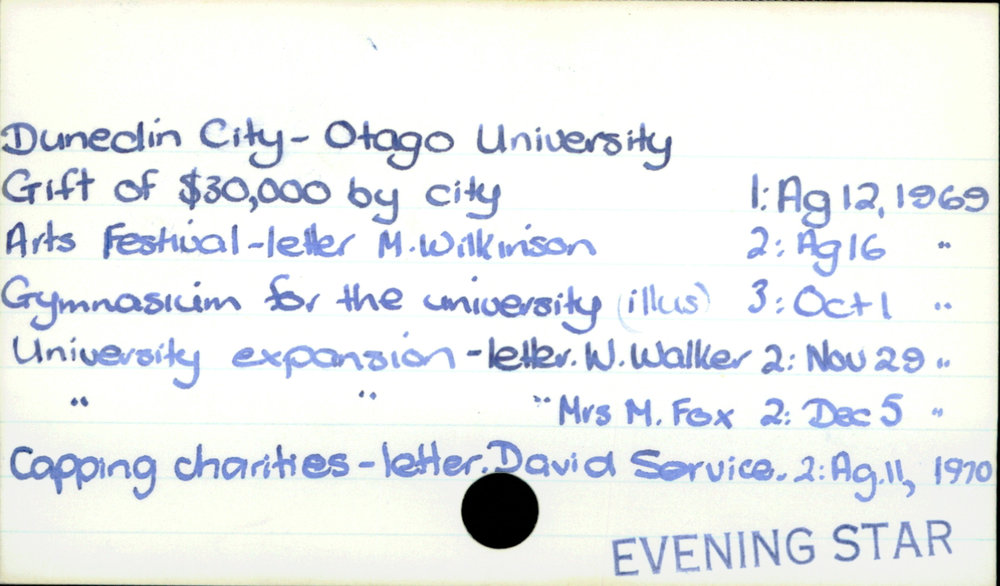 Dunedin City- Otago University
Gift of $30,000 by city 1: Ag 12, 1969
Arts Festival-letter M. Wilkinson 2: Ag 16 "
Gymnasium for the university (illus) 3: Oct 1 "
University expansion - letter. W. Walker 2: Nov 29 "
" " " Mrs M. Fox 2: Dec 5 "
Capping charities - letter. David Service. 2: Ag. 11, 1970
EVENING STAR